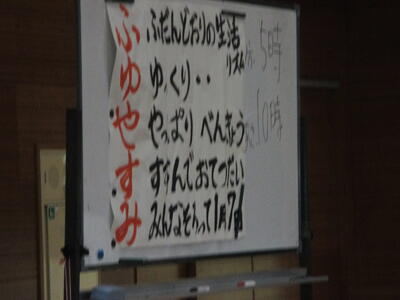 ふだんどおりの生活リズム
ゆっくり・・
やっぱり べんきょう
すすんでおてつだい
みんなそろって1月7日
ふゆやすみ
5時
10時